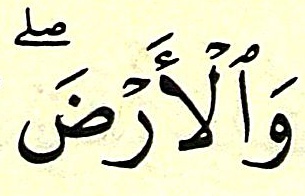 وَٱلْأَرْضَۖ